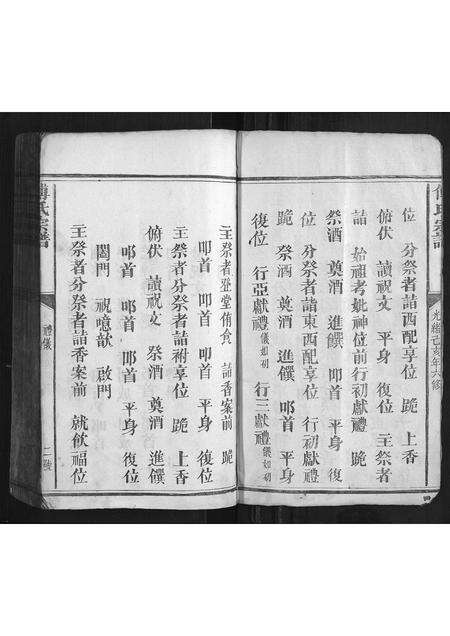 位 分祭者詣西配享位 跪 上香
俯伏 讀祝文 平身 復位 主祭者
詣 始祖考妣神位前行初獻禮 跪
祭酒 奠酒 進饌 叩首 平身 復
位 分祭者詣東西配享位 行初獻禮
跪 祭酒 奠酒 進饌 叩首 平身
復位 行亞獻禮儀如初 行三獻禮儀如初
光緒己亥年六修
主祭者登堂侑食 詣香案前 跪
叩首 叩首 平身 復位
主祭者分祭者詣祔享位 跪 上香
俯伏 讀祝文 祭酒 奠酒 進饌
叩首 叩首 平身 復位
闔門 祝噫歆 啟門
主祭者分祭者詣香案前 就飲福位
傅氏宗譜
禮儀
二號